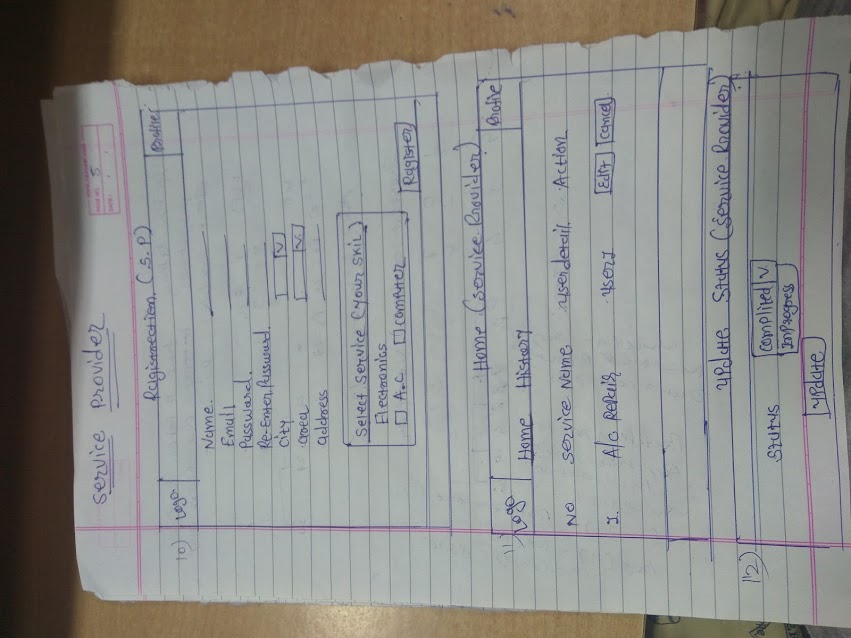 5
Service Provider
Ragistrection. (S.P)
10)
Logo
Profile
Name.
Email
Password.
Re-Enter Password.
City
area
address
Select Service (your skil)
Electronics
A.C
Computer
Ragister
Home (Service Provider)
11)
Logo
Profile
Home History
No Service Name userdetail Action
1. A/c Repair user1 Edit Cancel
update Status (Service Provider)
12)
Status Complited v
Improgress
update